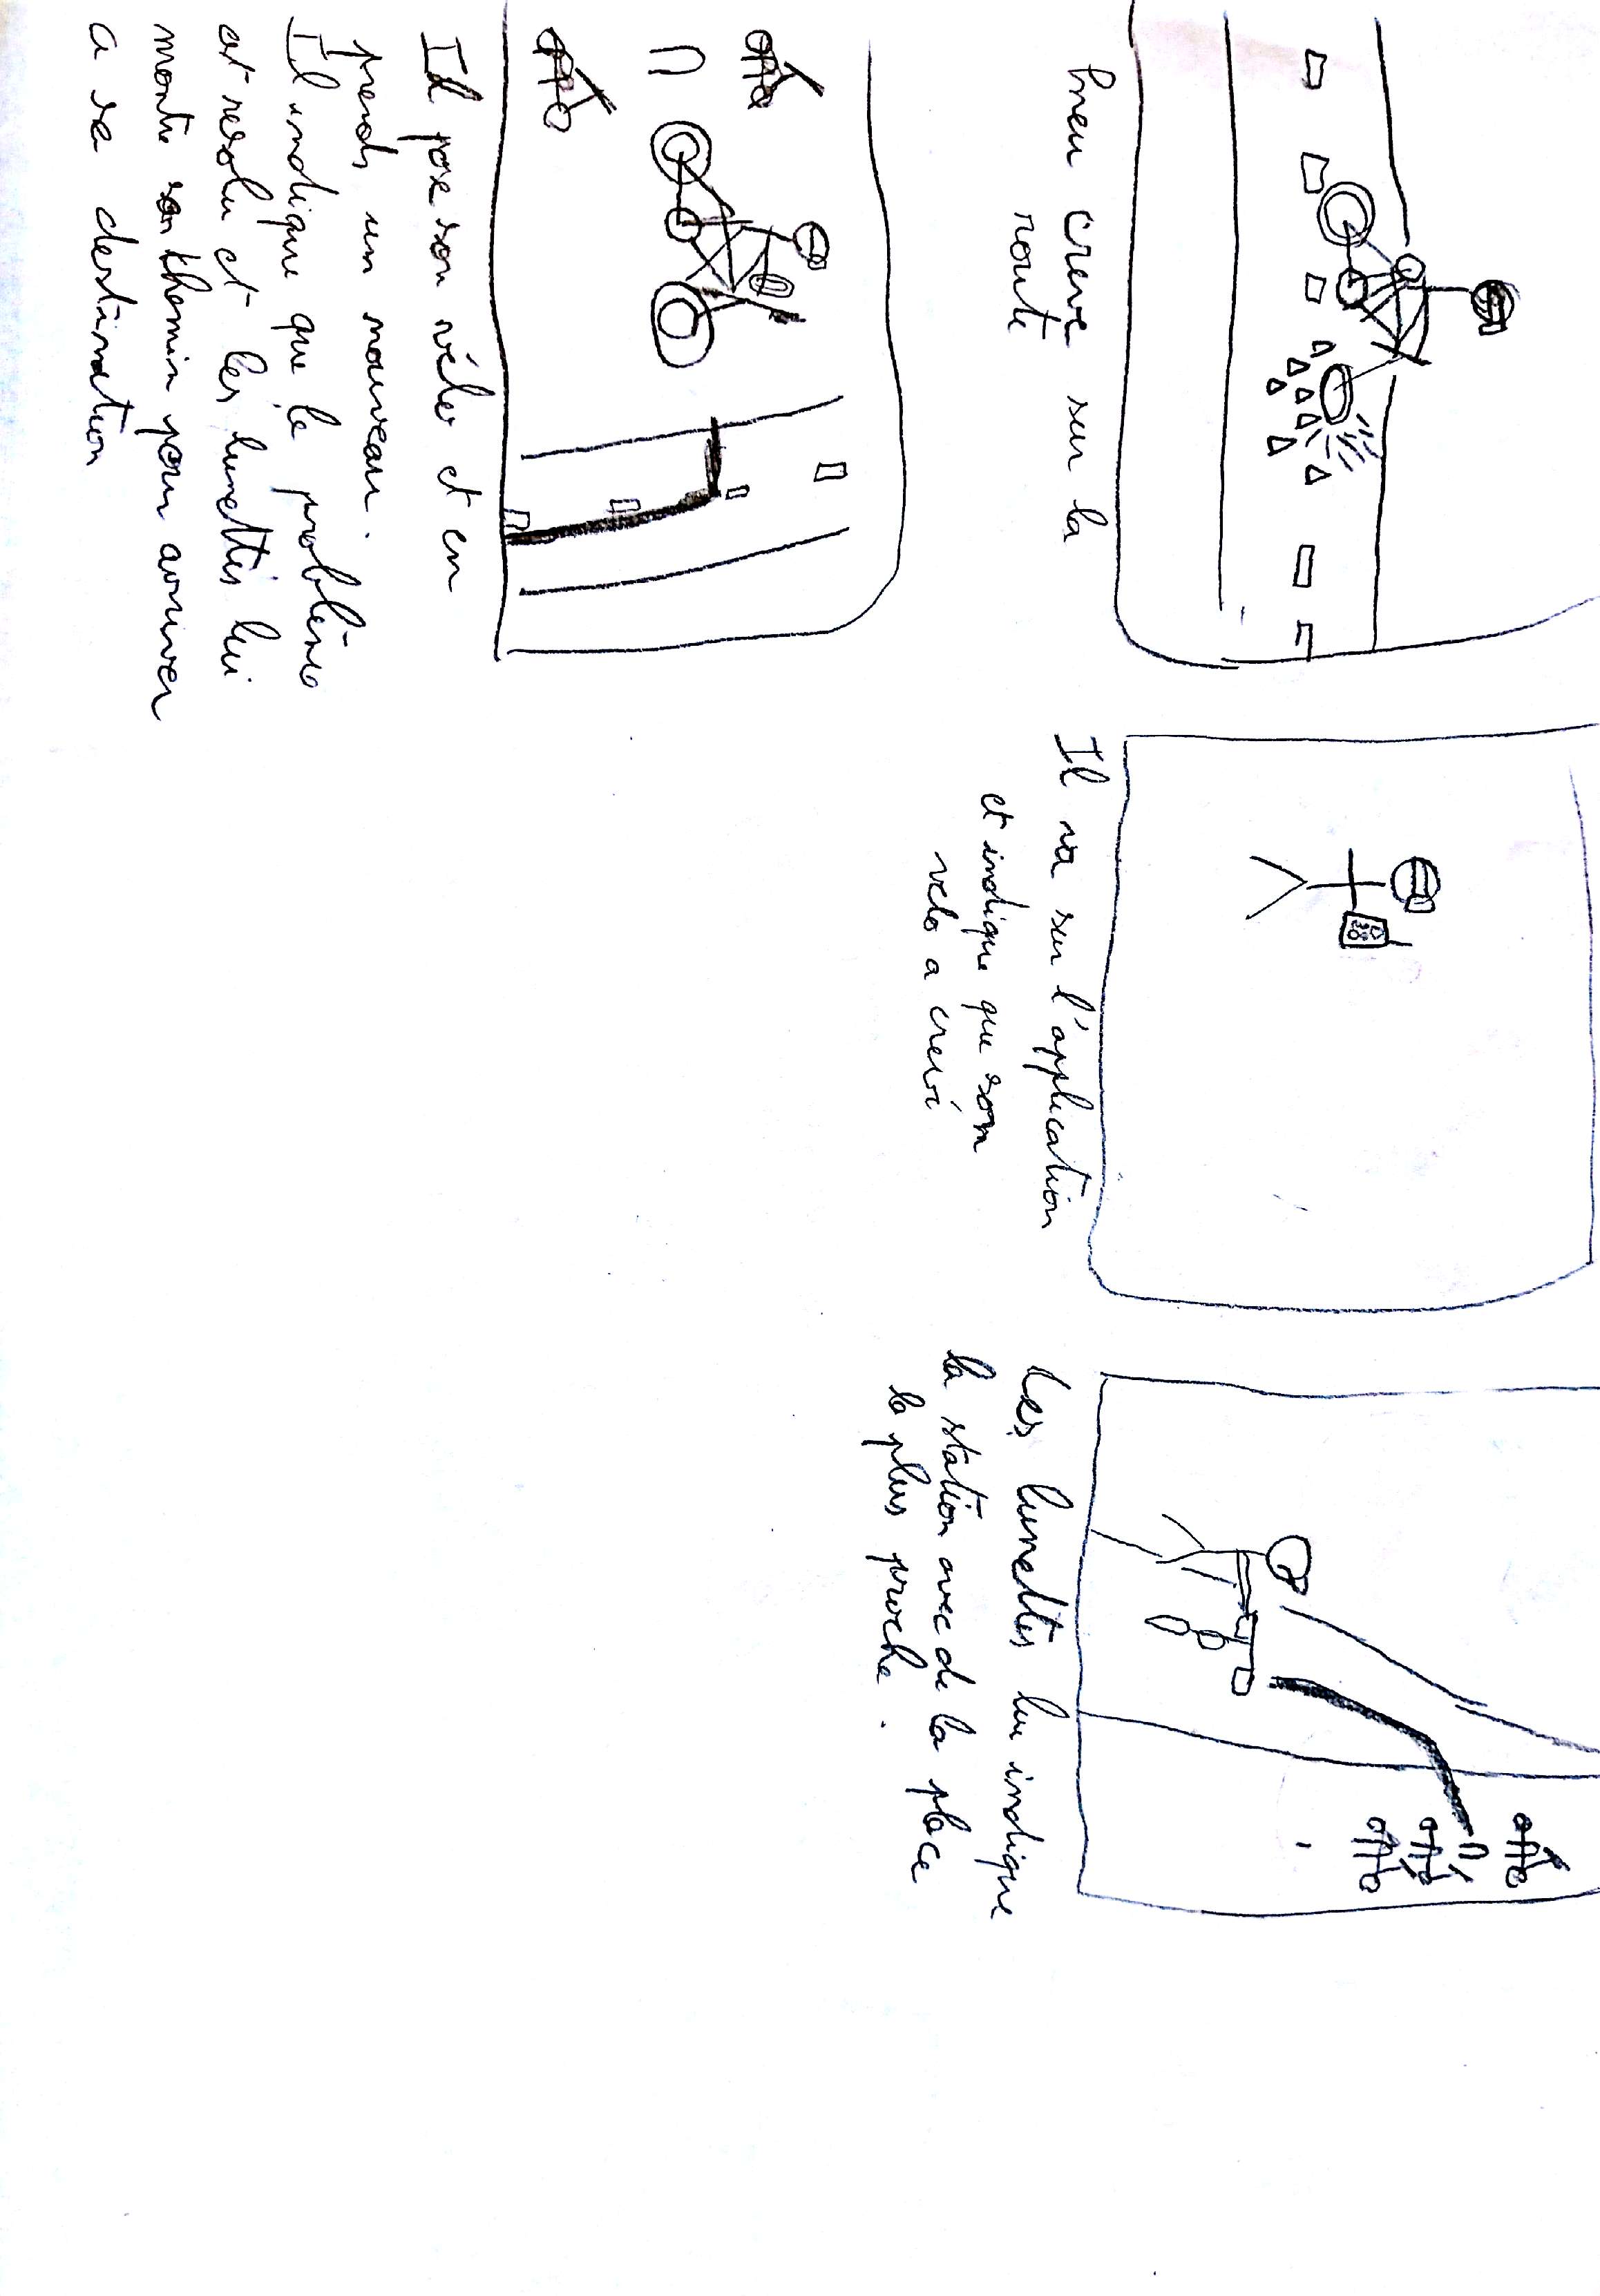 Pneu creve sur la
route
Il va sur l'application
et indique que son
velo a crevé
Les lunettes lui indique
la station avec de la place
la plus proche.
Il pose son vélo et en
prends un nouveau.
Il indique que le problème
est resolu et les lunettes lui
montre son chemin pour arriver
a sa destination